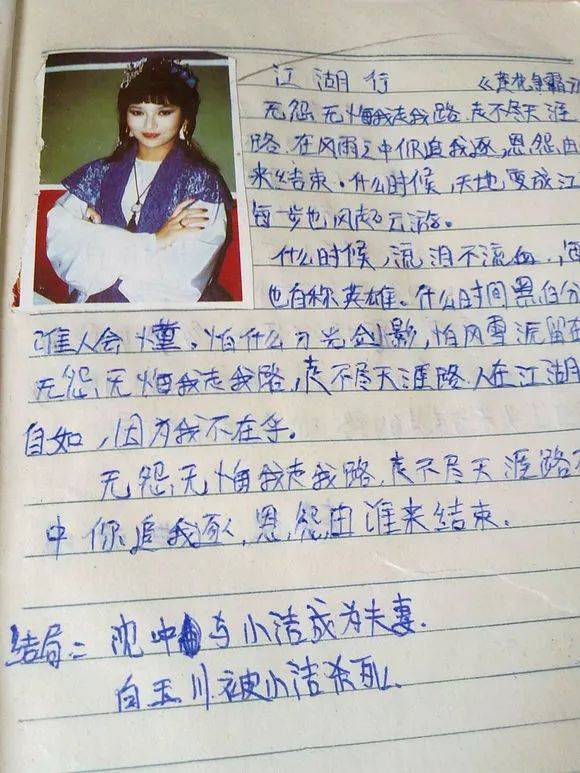 江湖行 《莲花争霸
无怨无悔我走我路,走不尽天涯
路,在风雨之中你追我逐,恩怨由
来结束。什么时候,天地变成江
每步也风起云游。
什么时候,流泪不流血,
也自称英雄。什么时间黑白分
谁人会懂。怕什么刀光剑影,怕风雪流留
无怨、无悔我走我路,走不尽天涯路.人在江湖
自如,因为我不在乎。
无怨、无悔我走我路.走不尽天涯路
中你追我逐,恩怨由谁来结束.
结局:沈冲与小洁成为夫妻.
白玉川被小洁杀死.